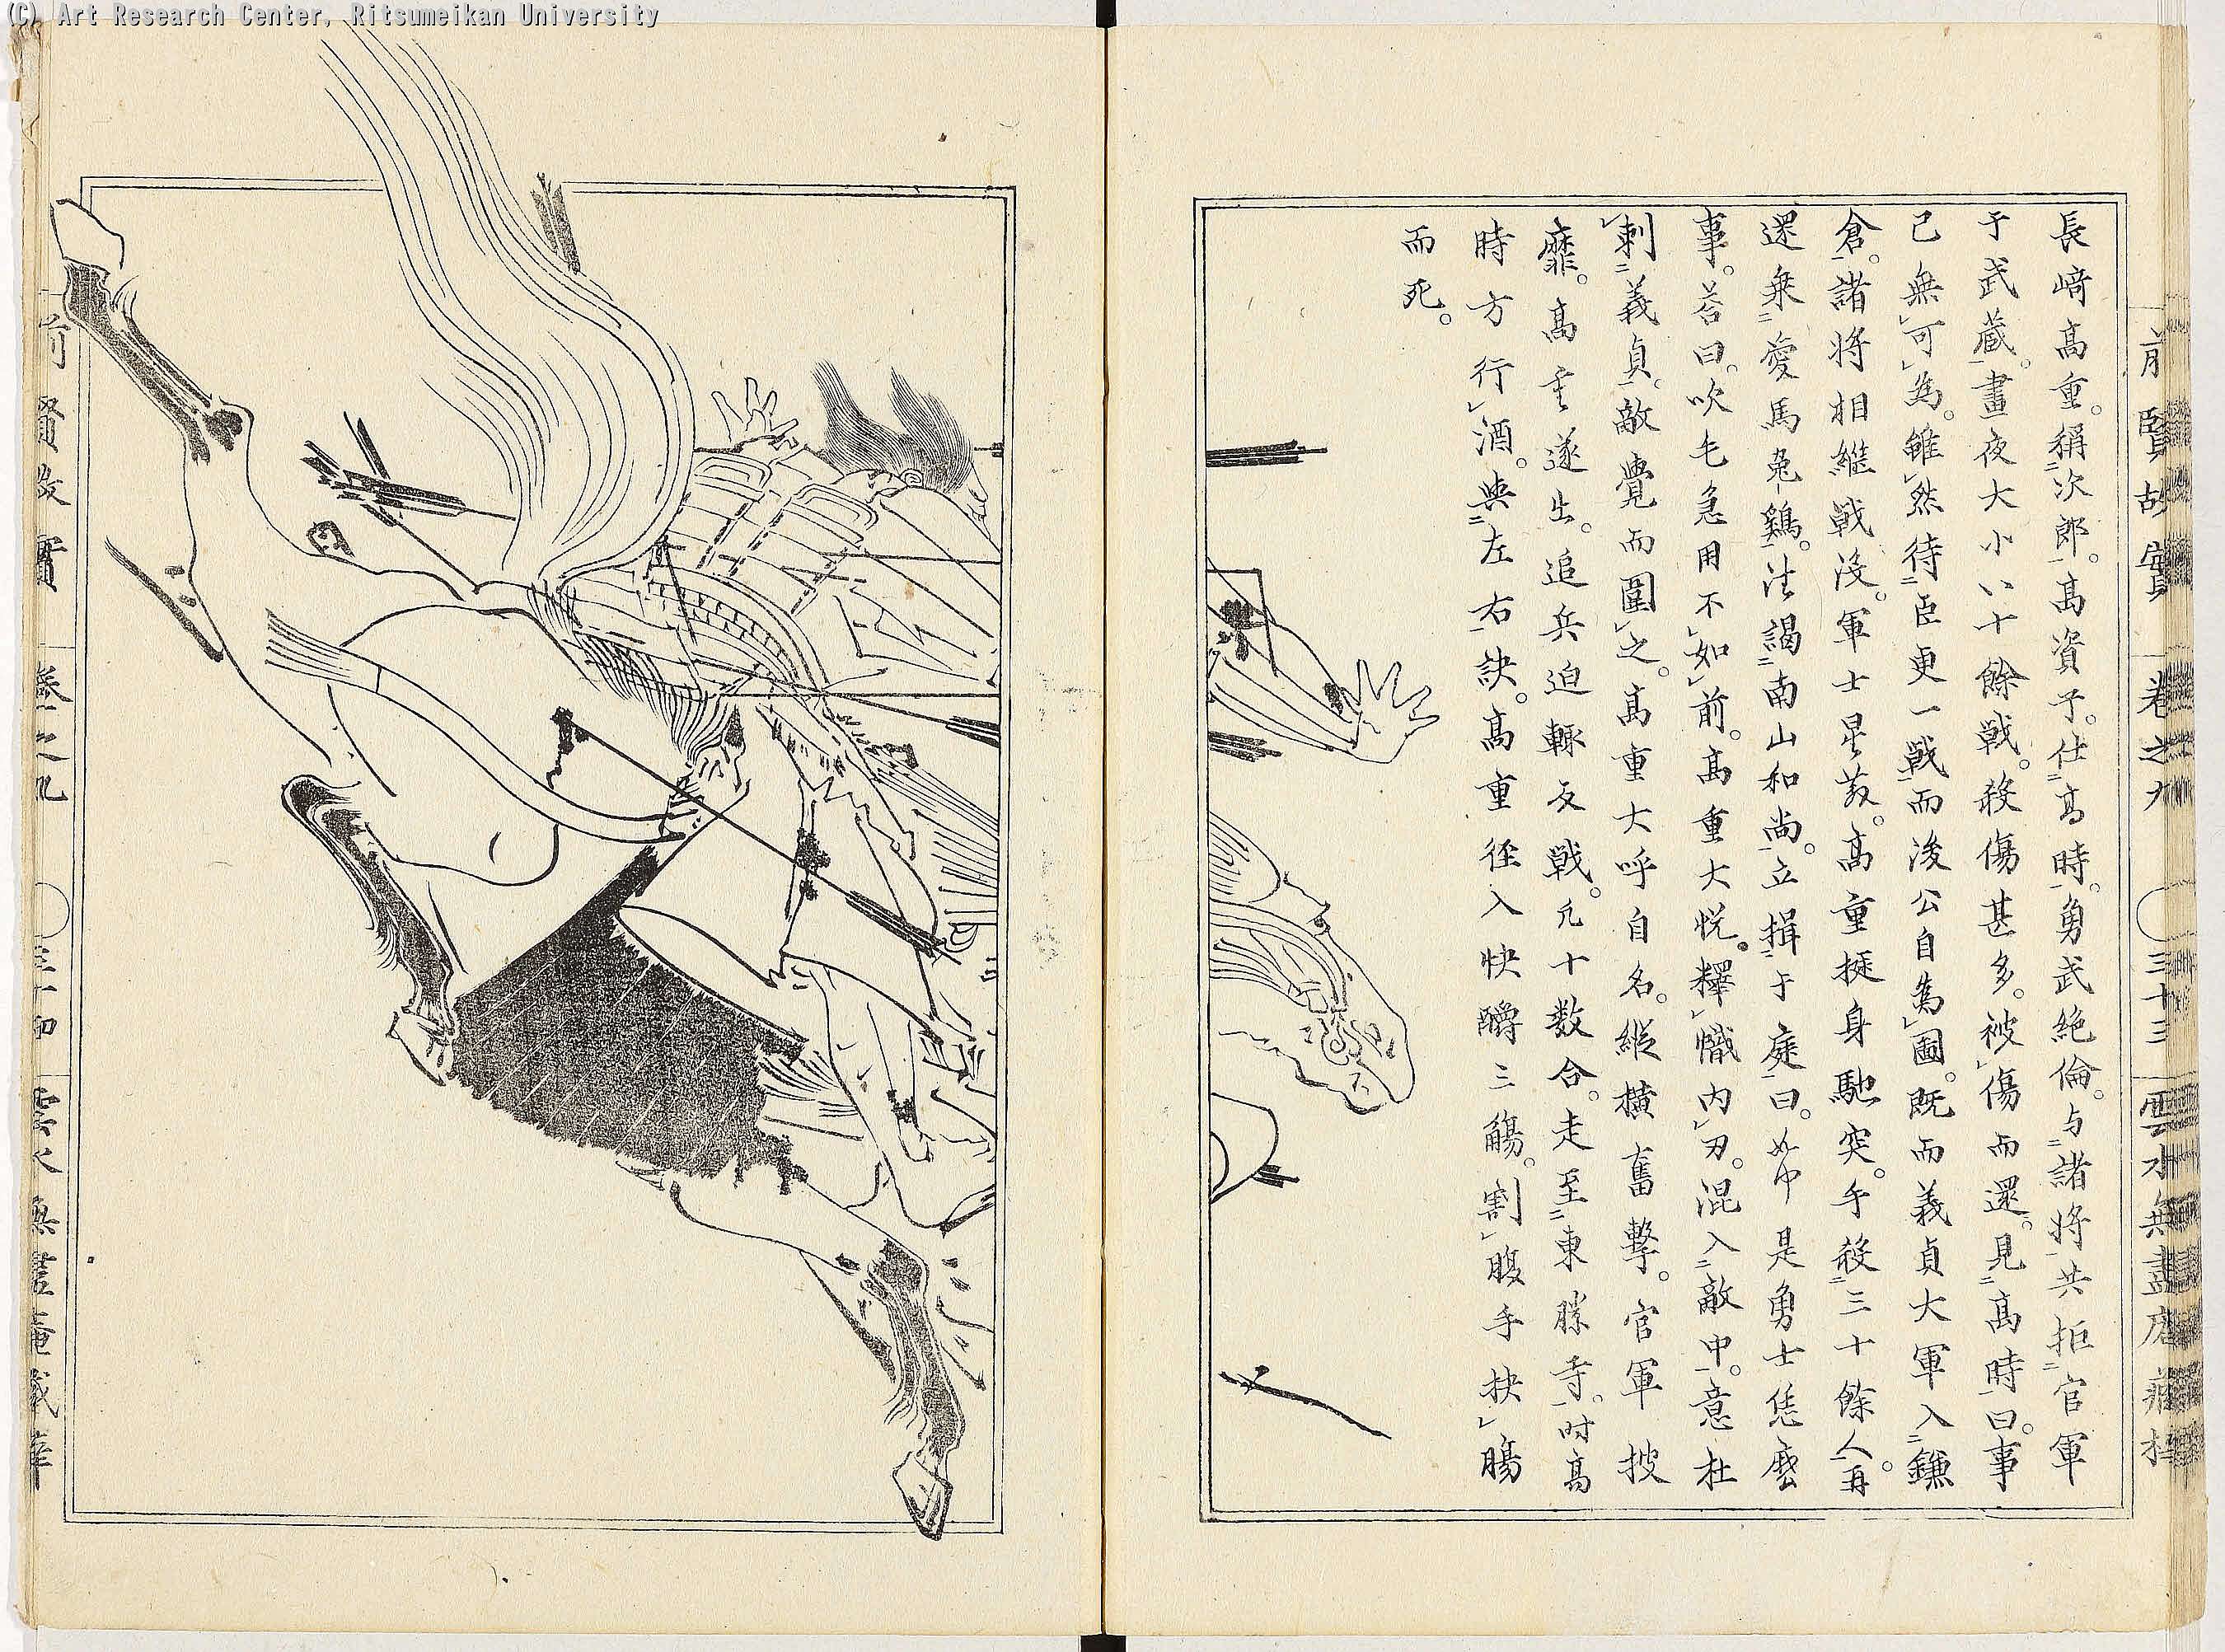 (C) Art Research Center, Ritsumeikan University
前賢故實 卷之九 ○三十三 雲水無盡庵藏梓
長﨑髙重。稱次郎。髙資子。仕髙時。勇武絶倫。与諸将共拒官軍
于武蔵。晝夜大小八十餘戦。殺傷甚多。被傷而還。見髙時曰。事
已無可為。雖然待臣更一戦而後公自為圖。既而義貞大軍入鎌
倉。諸将相繼戦没。軍士星散。髙重挺身馳突。手殺三十餘人。再
還乗愛馬兔鷄。往謁南山和尚。立揖于庭曰。如何是勇士恁麼
事。荅曰。吹毛急用不如前。髙重大悦。釋幟内刃。混入敵中。意在
刺義貞。敵覺而圍之。髙重大呼自名。縦横奮撃。官軍披
靡。髙重遂出。追兵迫輙反戦。凡十数合。走至東勝寺。时髙
時方行酒。與左右訣。髙重径入快釂三觴。割腹手抉腸
而死。
前賢故實 卷之九 ○三十 雲水無盡庵藏梓